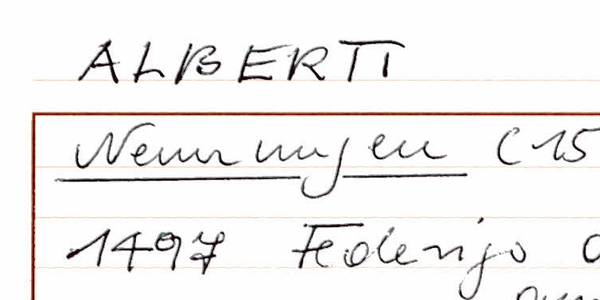 ALBERTI
Nennungen (15
1497 Federigo